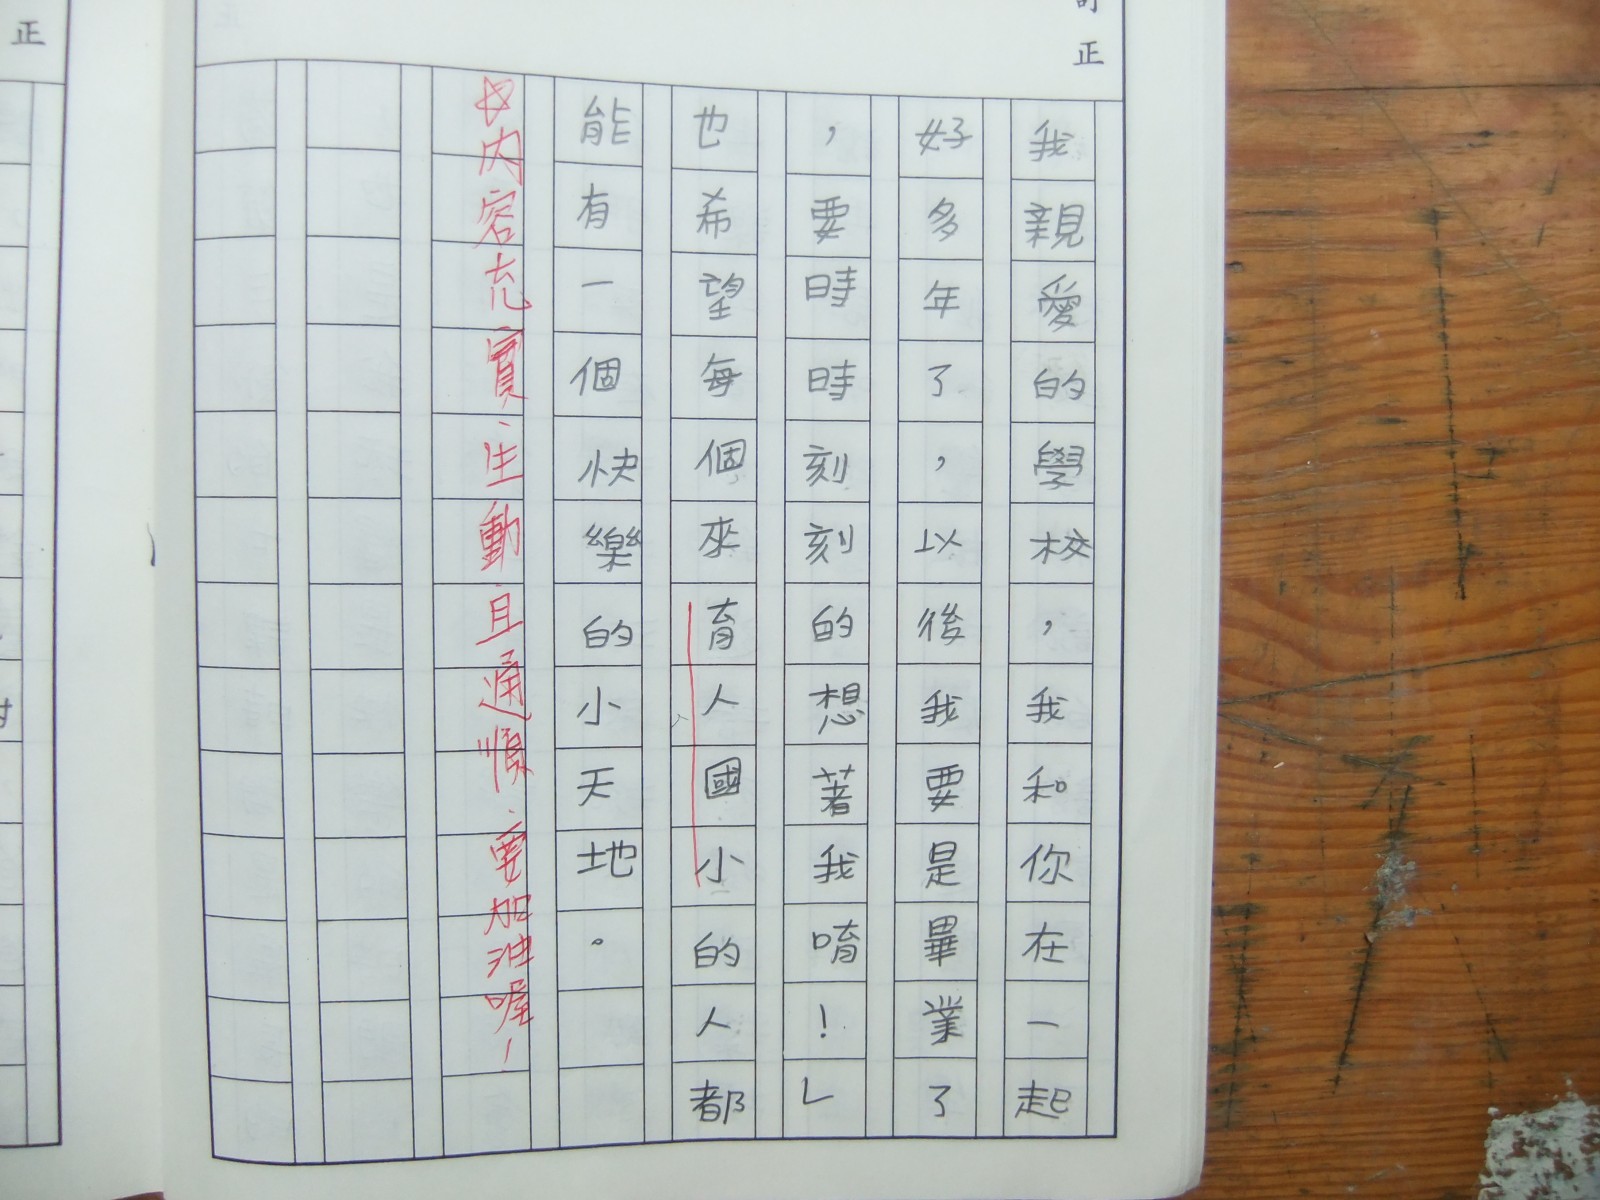 訂正
我親愛的學校，我和你在一起
好多年了，以後我要是畢業了
，要時時刻刻的想著我唷！」
也希望每個來育人國小的人都
能有一個快樂的小天地。
内容充實、生動且通順、要加油喔！
正